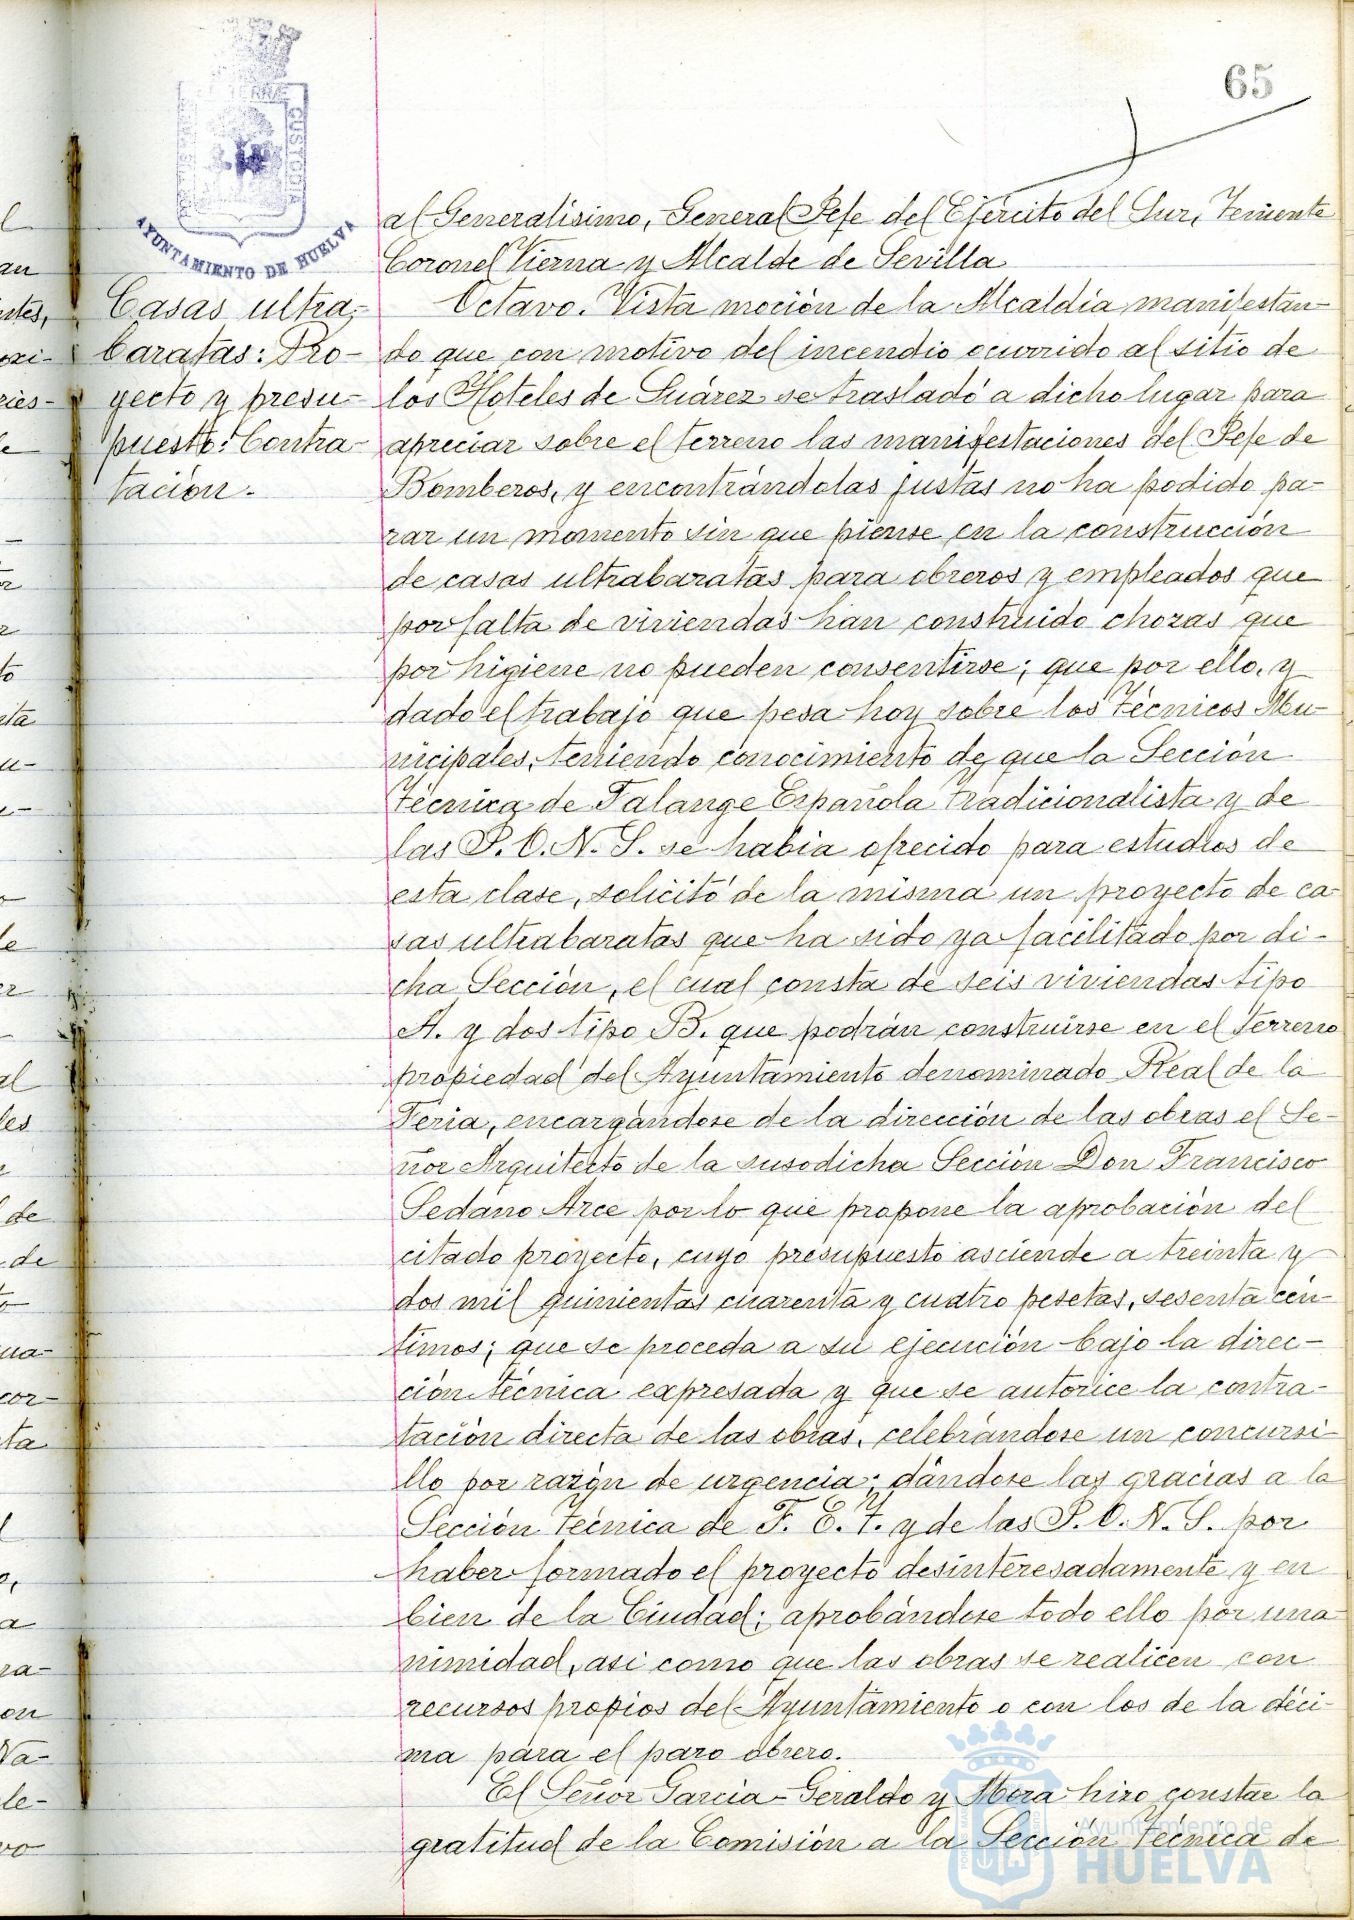 65
PORTUS MARIS ET TERRÆ CUSTODIA
AYUNTAMIENTO DE HUELVA
al Generalísimo, General Jefe del Ejército del Sur, Teniente
Coronel Vierna y Alcalde de Sevilla
Casas ultra-
baratas: Pro-
yecto y presu-
puesto: Contra-
tación.
Octavo. Vista moción de la Alcaldía manifestan-
do que con motivo del incendio ocurrido al sitio de
los Hoteles de Suárez se trasladó a dicho lugar para
apreciar sobre el terreno las manifestaciones del Jefe de
Bomberos, y encontrándolas justas no ha podido pa-
rar un momento sin que piense en la construcción
de casas ultrabaratas para obreros y empleados que
por falta de viviendas han construido chozas que
por higiene no pueden consentirse; que por ello, y
dado el trabajo que pesa hoy sobre los Técnicos Mu-
nicipales, teniendo conocimiento de que la Sección
Técnica de Falange Española Tradicionalista y de
las J.O.N.S. se había ofrecido para estudios de
esta clase, solicitó de la misma un proyecto de ca-
sas ultrabaratas que ha sido ya facilitado por di-
cha Sección, el cual consta de seis viviendas tipo
A. y dos tipo B. que podrán construirse en el terreno
propiedad del Ayuntamiento denominado Real de la
Feria, encargándose de la dirección de las obras el Se-
ñor Arquitecto de la susodicha Sección Don Francisco
Sedano Arce por lo que propone la aprobación del
citado proyecto, cuyo presupuesto asciende a treinta y
dos mil quinientas cuarenta y cuatro pesetas, sesenta cén-
timos; que se proceda a su ejecución bajo la direc-
ción técnica expresada y que se autorice la contra-
tación directa de las obras, celebrándose un concursi-
llo por razón de urgencia; dándose las gracias a la
Sección Técnica de F. E. T. y de las J.O.N.S. por
haber formado el proyecto desinteresadamente y en
bien de la Ciudad; aprobándose todo ello por una-
nimidad, así como que las obras se realicen con
recursos propios del Ayuntamiento o con los de la déci-
ma para el paro obrero.
El Señor García-Geraldo y Mora hizo constar la
gratitud de la Comisión a la Sección Técnica de
Ayuntamiento de
HUELVA